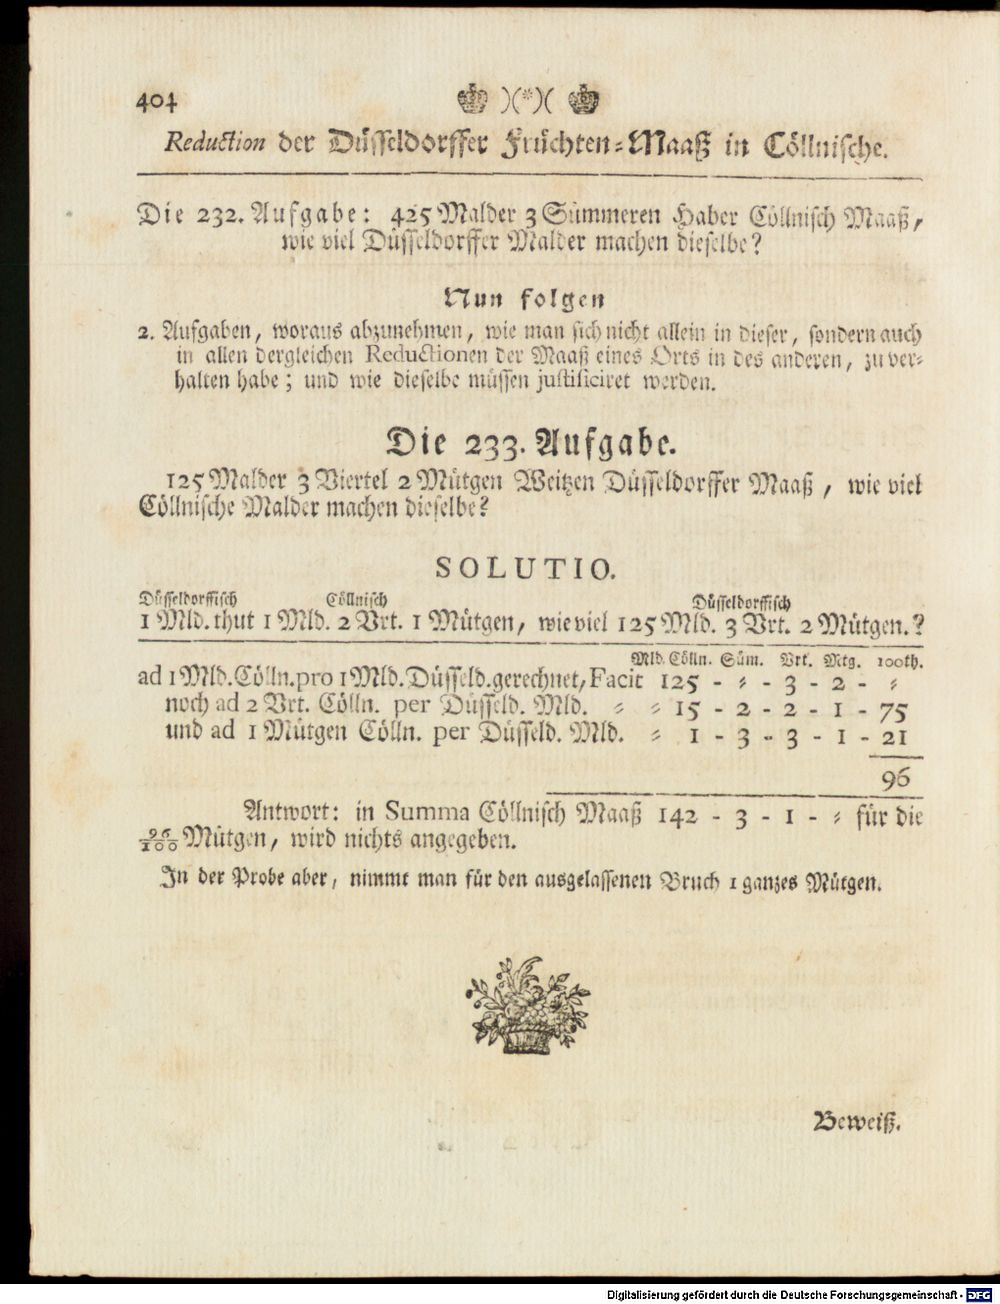 404 )(*)(
Reduction der Düsseldorffer Früchten-Maaß in Cöllnische.
Die 232. Aufgabe: 425 Malder 3 Sümmeren Haber Cöllnisch Maaß,
wie viel Düsseldorffer Malder machen dieselbe?
Nun folgen
2. Aufgaben, woraus abzunehmen, wie man sich nicht allein in dieser, sondern auch
in allen dergleichen Reductionen der Maaß eines Orts in des anderen, zu ver-
halten habe; und wie dieselbe müssen justificiret werden.
Die 233. Aufgabe.
125 Malder 3 Viertel 2 Mütgen Weitzen Düsseldorffer Maaß, wie viel
Cöllnische Malder machen dieselbe?
SOLUTIO.
Düsseldorffisch Cöllnisch Düsseldorffisch
1 Mld. thut 1 Mld. 2 Vrt. 1 Mütgen, wie viel 125 Mld. 3 Vrt. 2 Mütgen.?
Mld. Cölln. Süm. Vrt. Mtg. 100th.
ad 1 Mld. Cölln. pro 1 Mld. Düsseld. gerechnet, Facit 125 - = - 3 - 2 - =
noch ad 2 Vrt. Cölln. per Düsseld. Mld. = = 15 - 2 - 2 - 1 - 75
und ad 1 Mütgen Cölln. per Düsseld. Mld. = 1 - 3 - 3 - 1 - 21
96
Antwort: in Summa Cöllnisch Maaß 142 - 3 - 1 - = für die
96/100 Mütgen, wird nichts angegeben.
In der Probe aber, nimmt man für den ausgelassenen Bruch 1 ganzes Mütgen.
Beweiß.
Digitalisierung gefördert durch die Deutsche Forschungsgemeinschaft - DFG